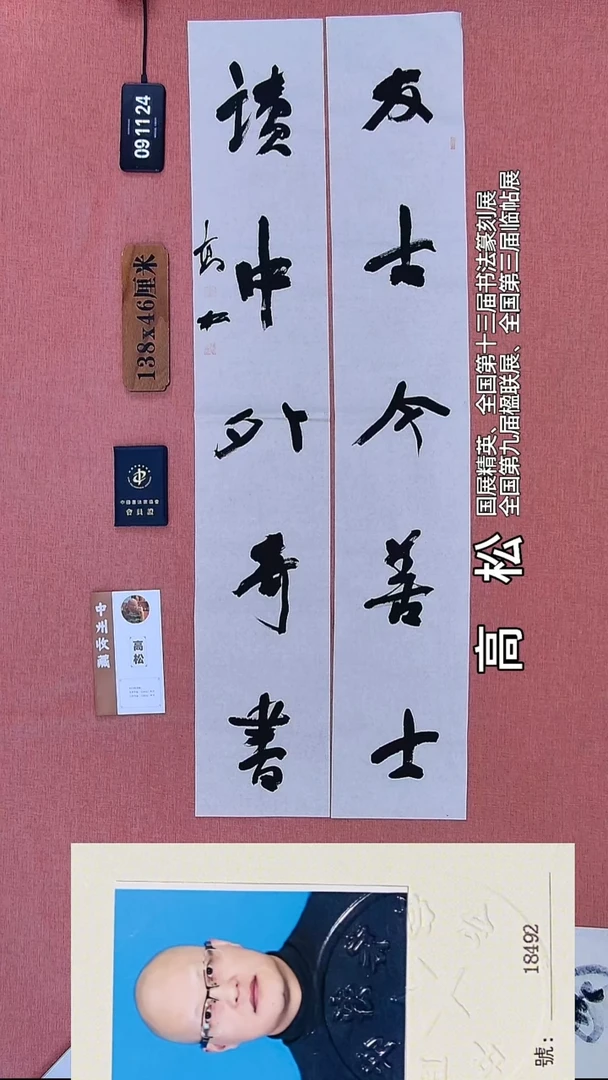 友古今善士
讀中外奇書
高松
09 11 24
138x46厘米
會員證
中州收藏
高松
国展精英、全国第十三届书法篆刻展
全国第九届楹联展、全国第三届临帖展
高 松
號: 18492